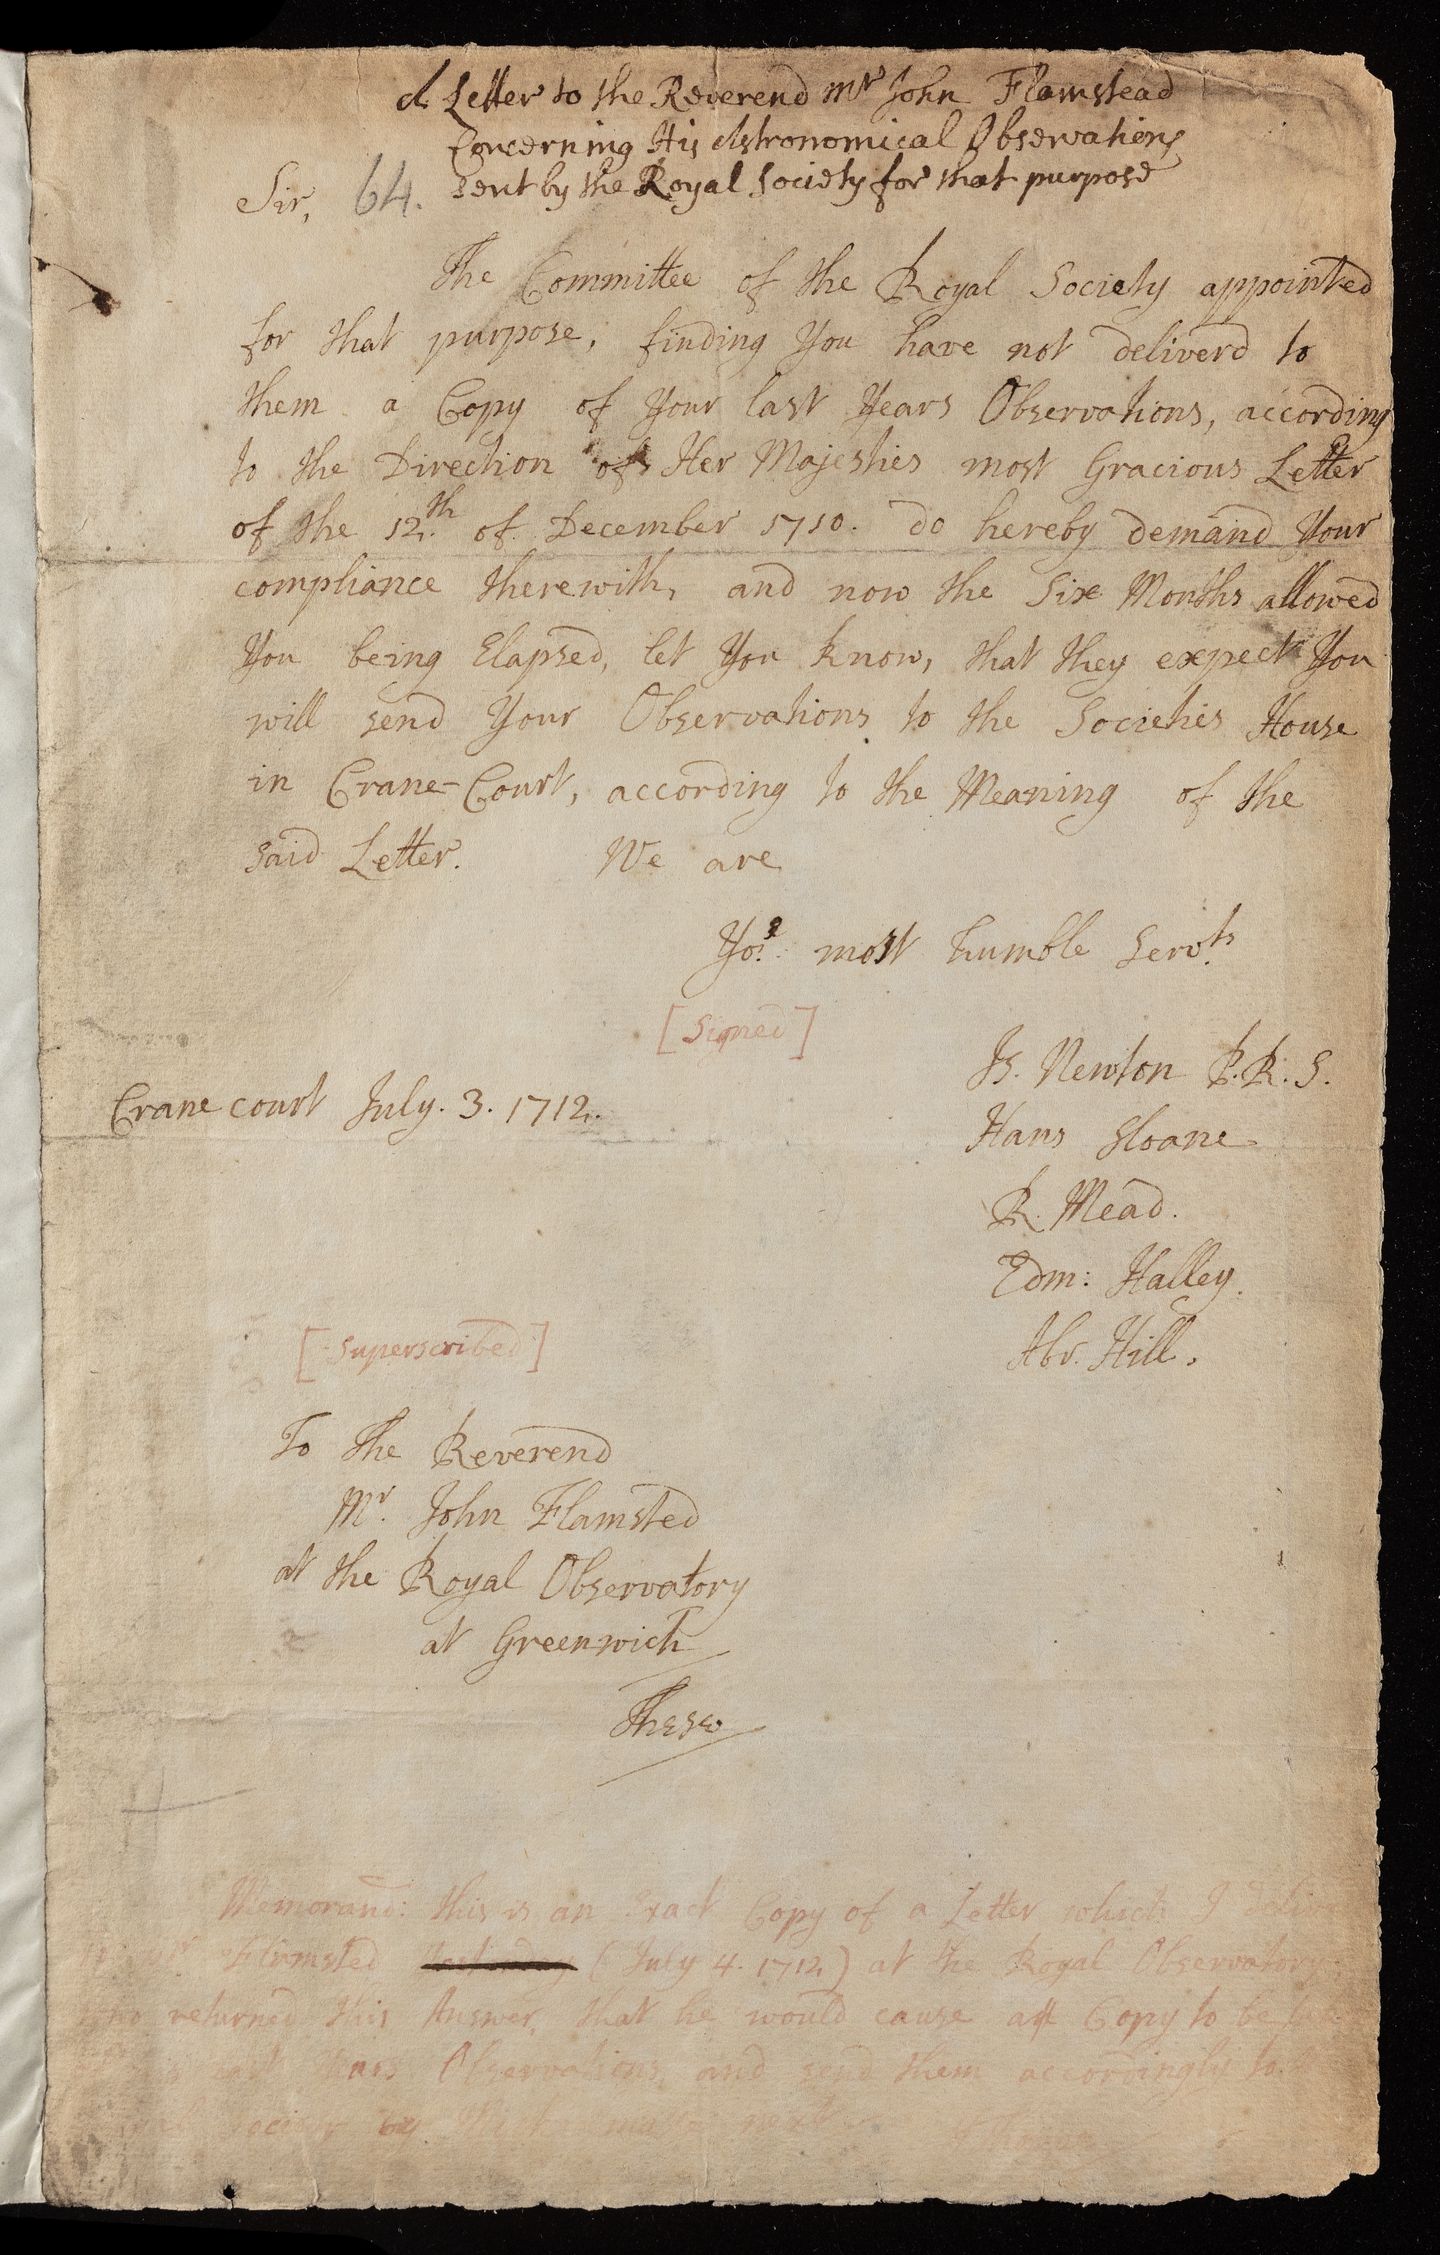 A Letter to the Reverend Mr John Flamstead
Concerning His Astronomical Observations
sent by the Royal Society for that purpose
Sir, 64.
The Committee of the Royal Society appointed
for that purpose, finding You have not deliverd to
them a Copy of Your last Years Observations, according
to the Direction of Her Majesties most Gracious Letter
of the 12th. of December 1710. do hereby demand Your
compliance therewith, and now the Six Months allowed
You being Elapsed, let You know, that they expect You
will send Your Observations to the Societies House
in Crane-Court, according to the Meaning of the
said Letter. We are
Yor. most humble Servts.
[Signed]
Is. Newton P.R.S.
Crane court July. 3. 1712.
Hans Sloane
R. Mead.
Edm: Halley.
Abr. Hill.
[Superscribed]
To the Reverend
Mr. John Flamsted
at the Royal Observatory
at Greenwich
These
Memorand: this is an exact Copy of a Letter which I
Flamsted yesterday (July 4. 1712) at the Royal Observatory
who returned this Answer, that he would cause a Copy to be
last Years Observations, and send them accordingly to
Society by Michaelmass next